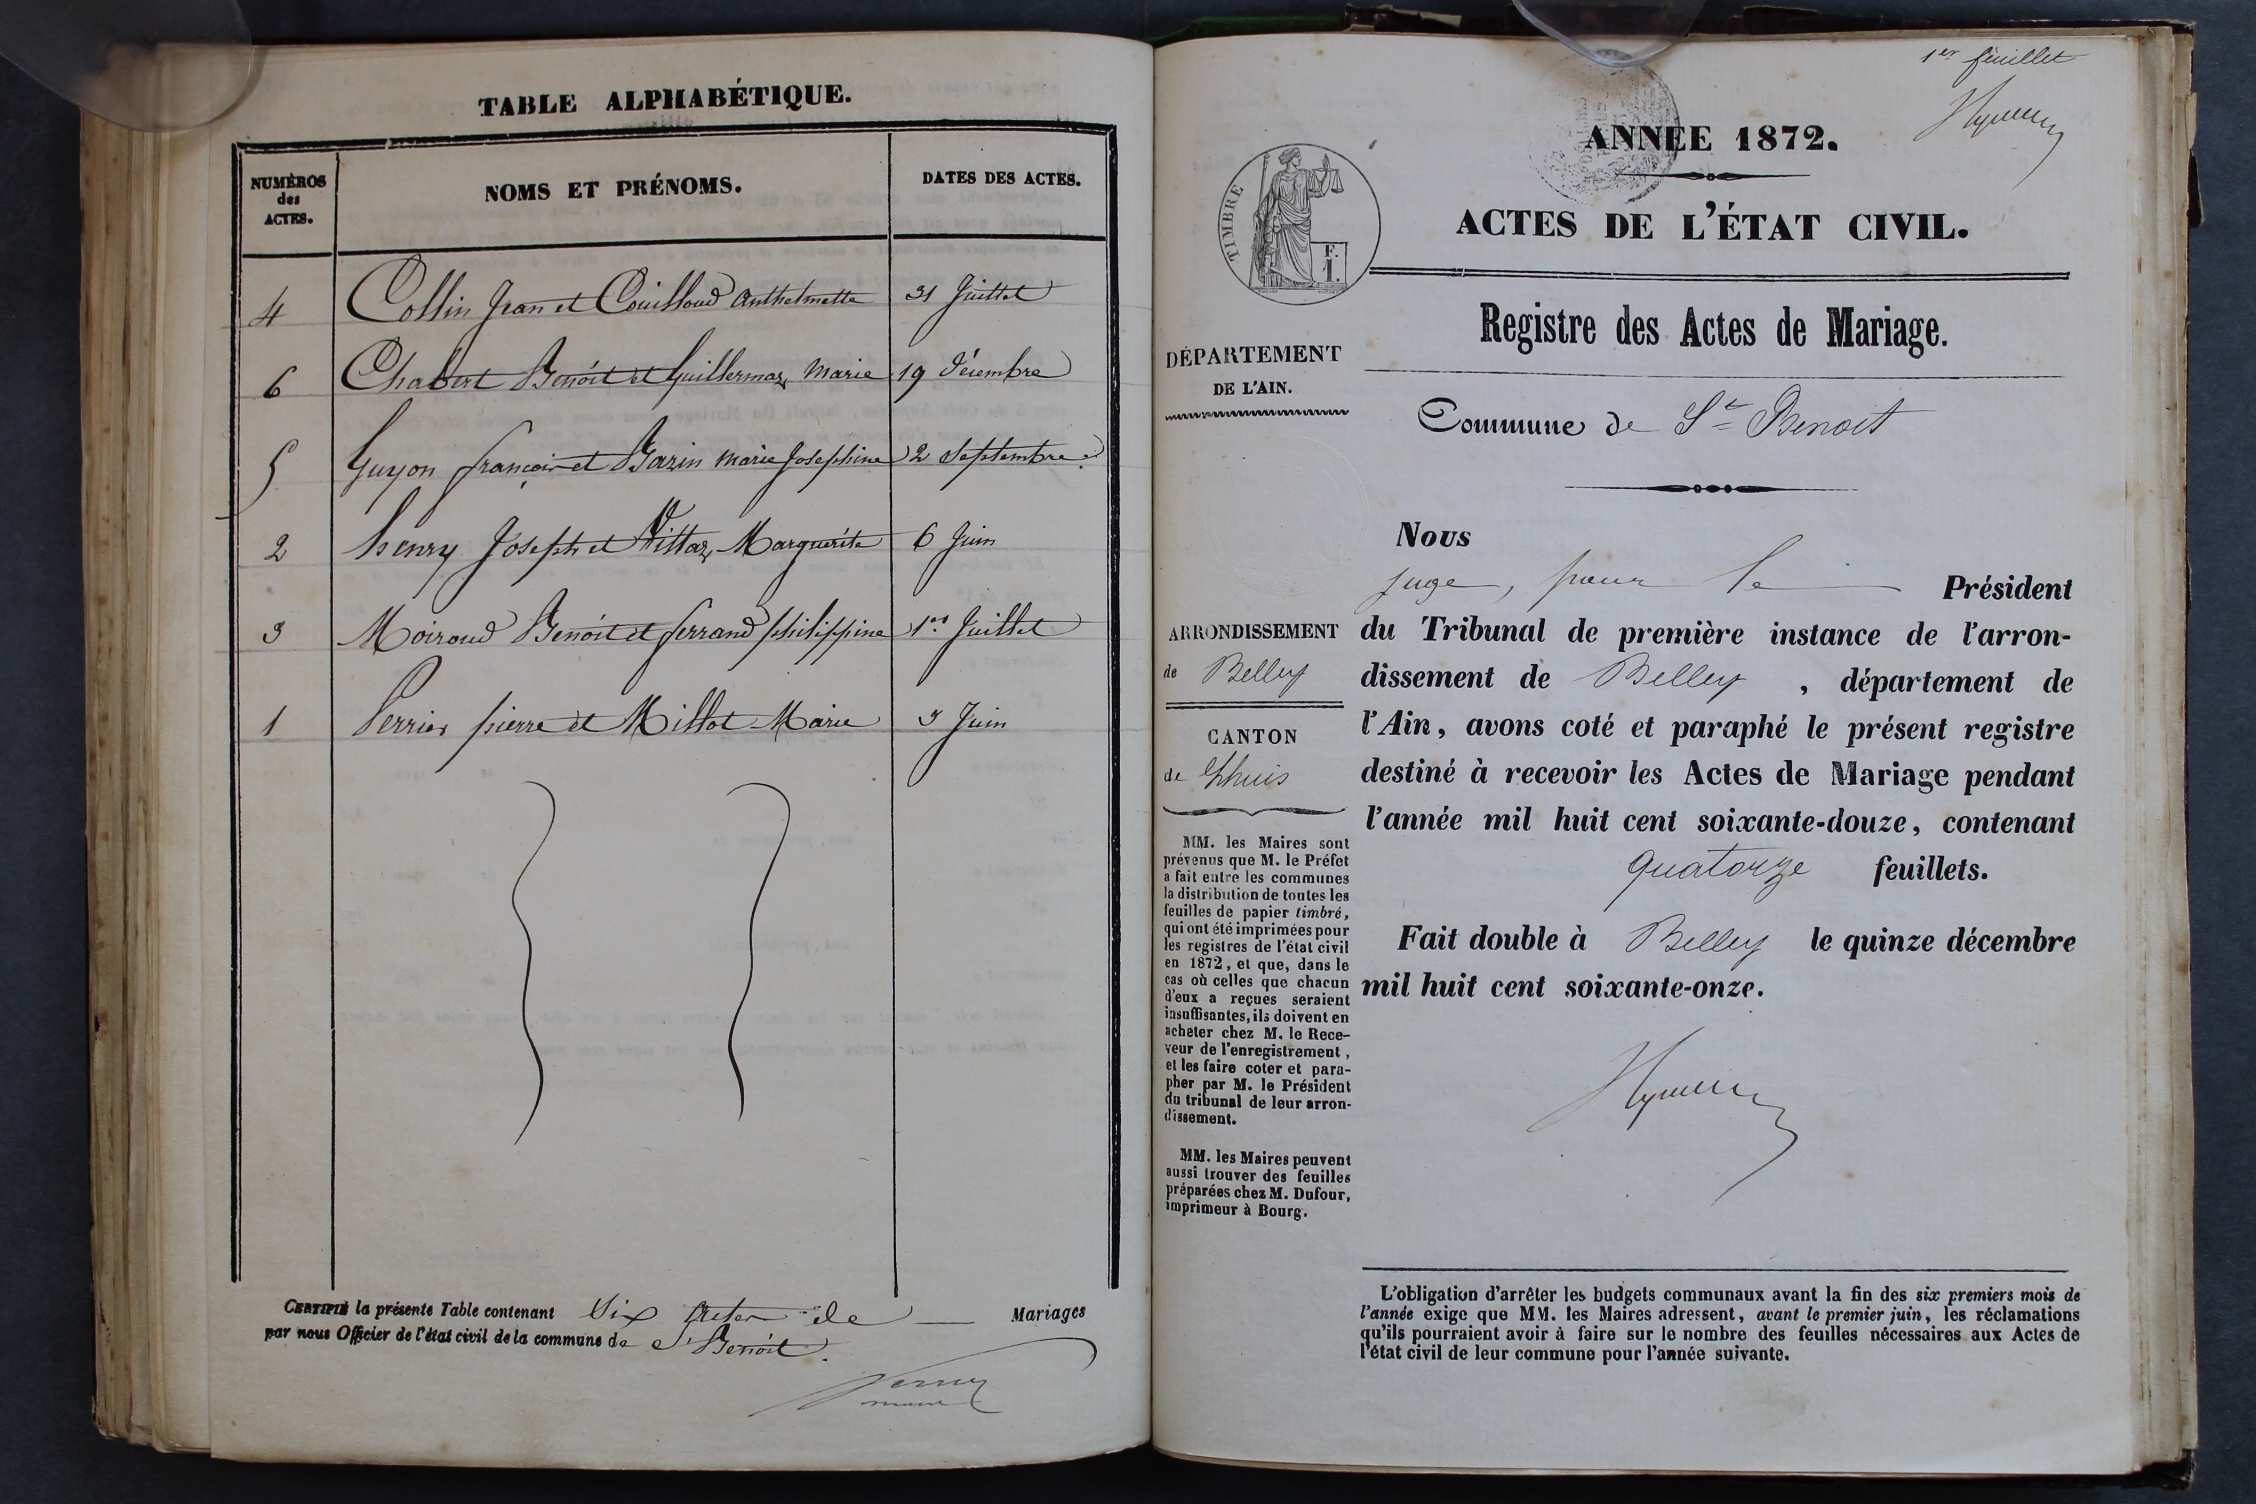 TABLE ALPHABÉTIQUE.
NUMÉROS des ACTES.
NOMS ET PRÉNOMS.
DATES DES ACTES.
4 Collin Jean et Couilloud Anthelmette 31 Juillet
6 Chabert Benóit et Guillermaz Marie 19 Décembre
5 Guyon françois et Bazin Marie Josephine 2 Septembre
2 henry Joseph et Vittaz Marguerite 6 Juin
3 Moiroud Benóit et ferrand philippine 1er Juillet
1 Perrier pierre et Millot Marie 3 Juin
CERTIFIÉ la présente Table contenant Six Actes de Mariages
par nous Officier de l'état civil de la commune de St Benóit.
1er feuillet
ANNÉE 1872.
TIMBRE
F.
1.
ACTES DE L'ÉTAT CIVIL.
Registre des Actes de Mariage.
DÉPARTEMENT
DE L'AIN.
Commune de St Benoit
Nous
juge, pour le Président
du Tribunal de première instance de l'arron-
dissement de Belley, département de
l'Ain, avons coté et paraphé le présent registre
destiné à recevoir les Actes de Mariage pendant
l'année mil huit cent soixante-douze, contenant
quatorze feuillets.
Fait double à Belley le quinze décembre
mil huit cent soixante-onze.
ARRONDISSEMENT
de Belley
CANTON
de Lhuis
MM. les Maires sont
prévenus que M. le Préfet
a fait entre les communes
la distribution de toutes les
feuilles de papier timbré,
qui ont été imprimées pour
les registres de l'état civil
en 1872, et que, dans le
cas où celles que chacun
d'eux a reçues seraient
insuffisantes, ils doivent en
acheter chez M. le Rece-
veur de l'enregistrement,
et les faire coter et para-
pher par M. le Président
du tribunal de leur arron-
dissement.
MM. les Maires peuvent
aussi trouver des feuilles
préparées chez M. Dufour,
imprimeur à Bourg.
L'obligation d'arrêter les budgets communaux avant la fin des six premiers mois de
l'année exige que MM. les Maires adressent, avant le premier juin, les réclamations
qu'ils pourraient avoir à faire sur le nombre des feuilles nécessaires aux Actes de
l'état civil de leur commune pour l'année suivante.